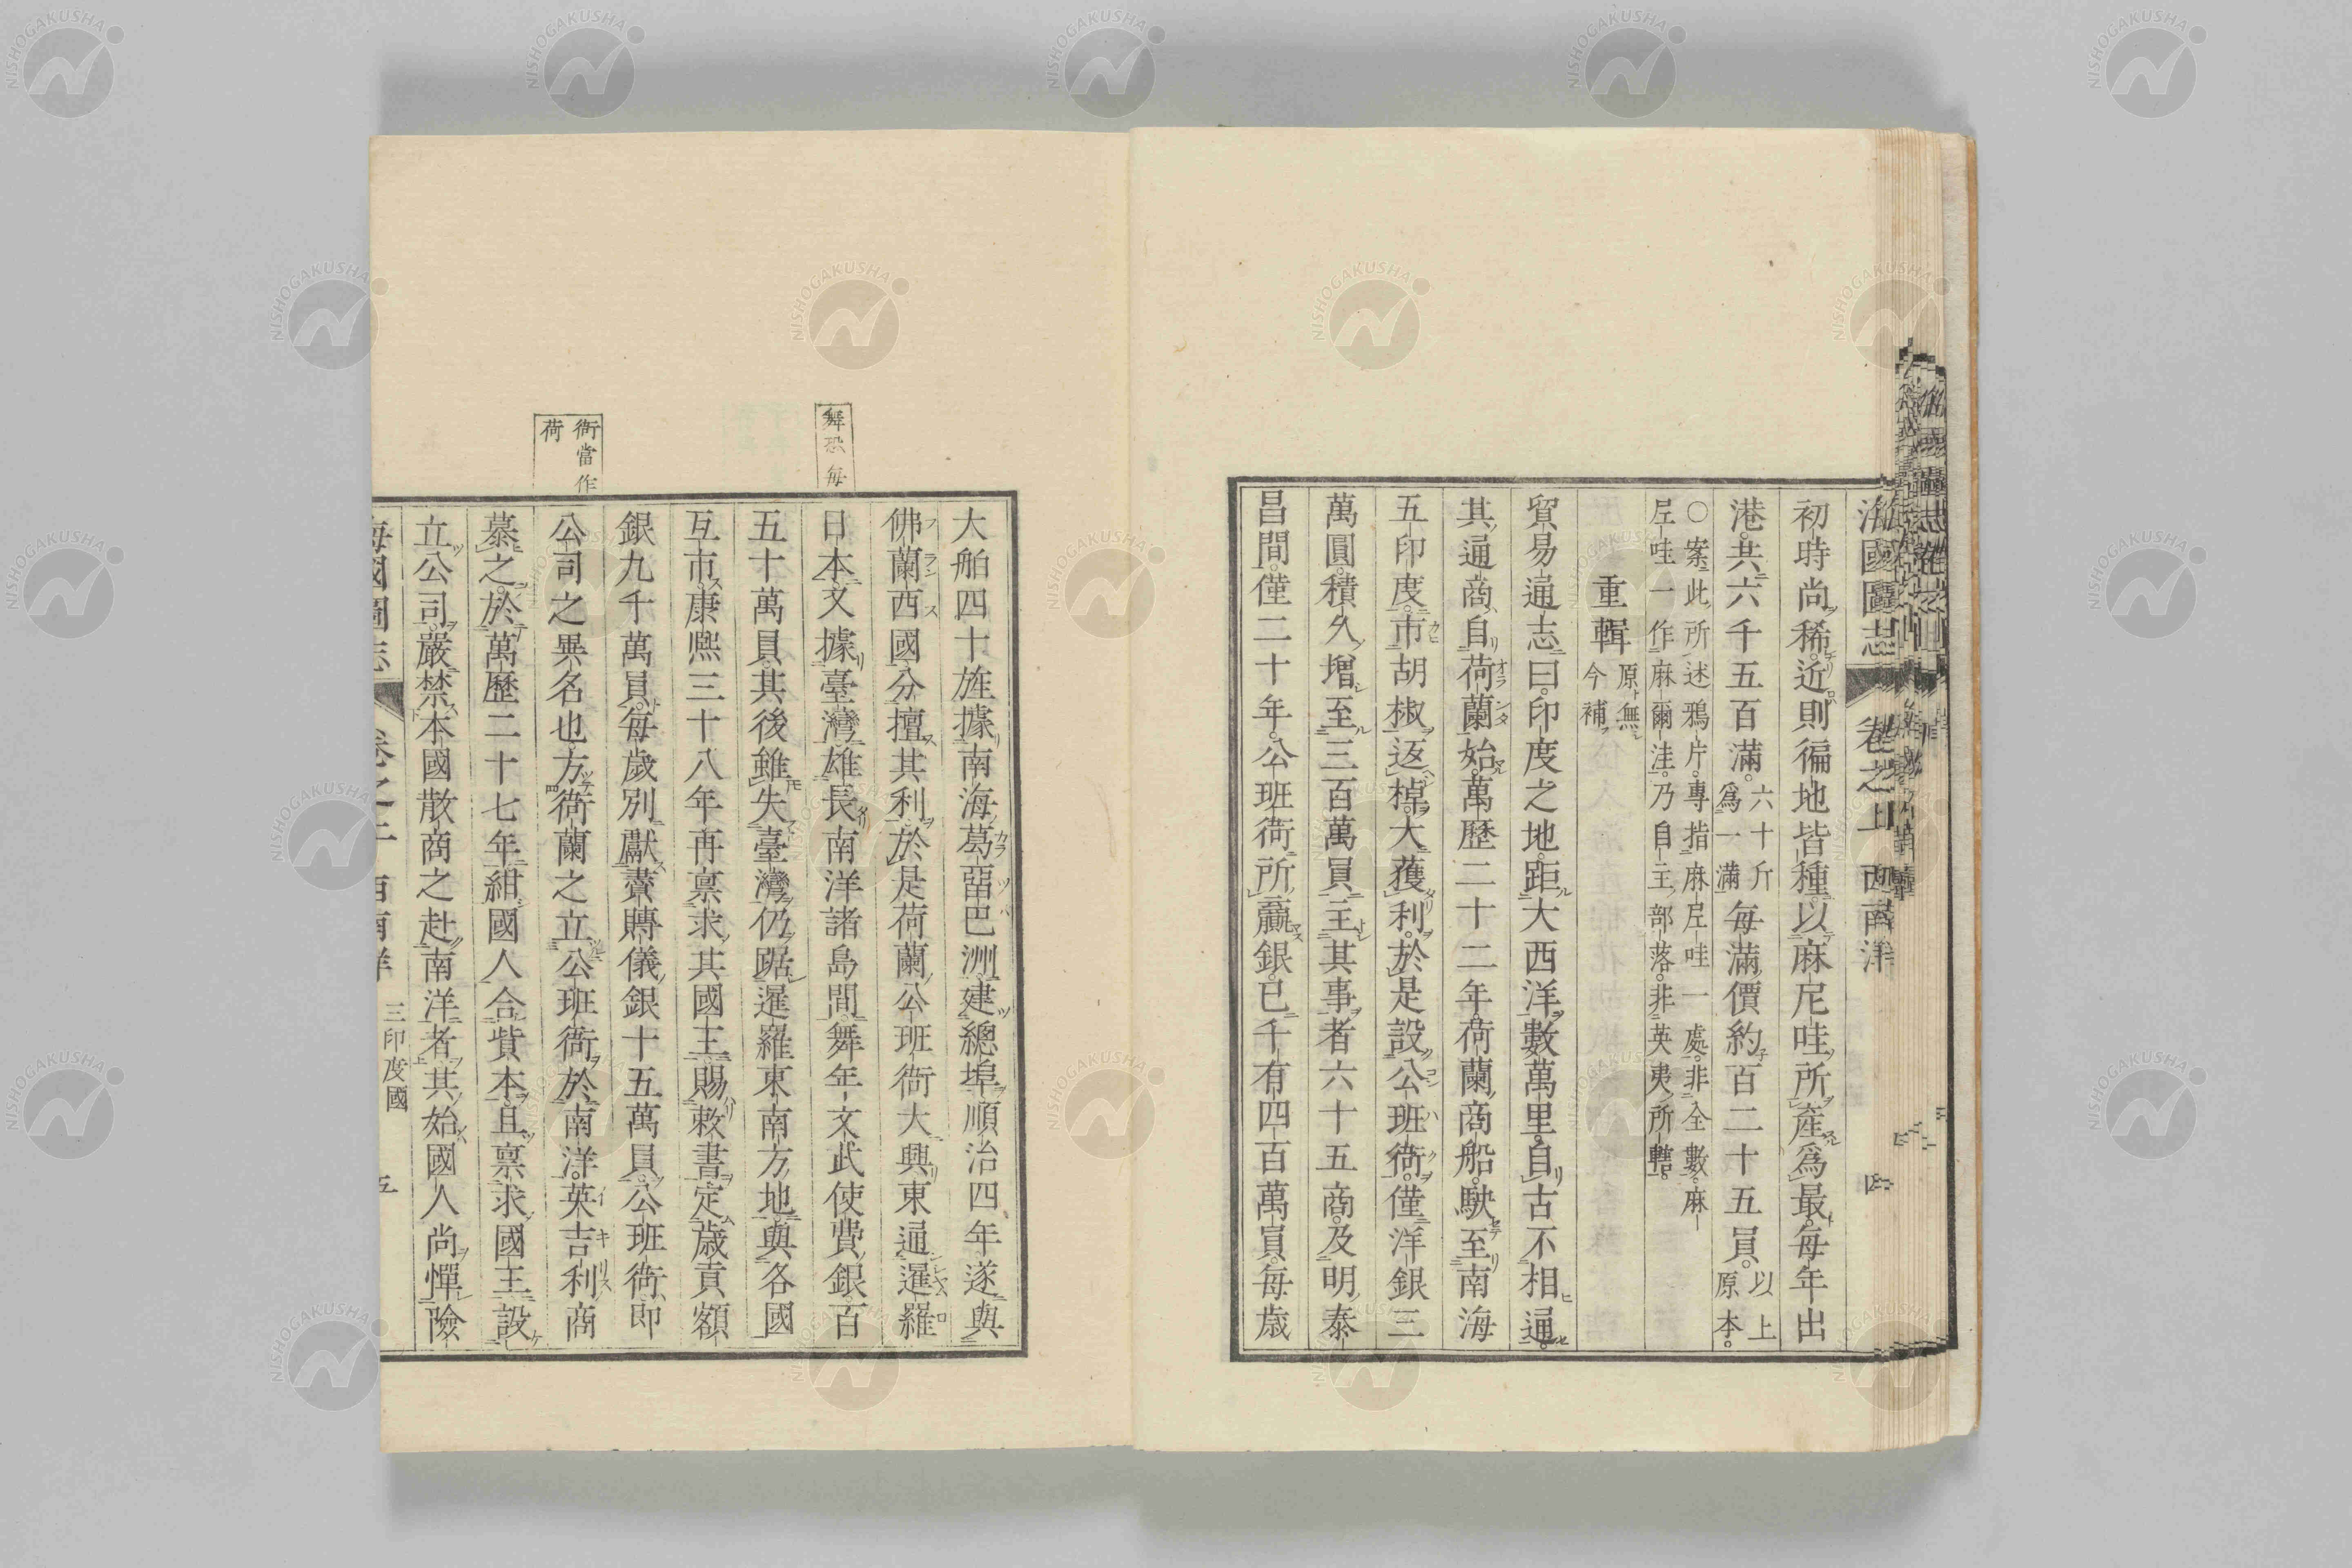 海國圖志 卷之上 西南洋
初時尚稀。近則徧地皆種。以麻尼哇所産爲最。每年出
港。共六千五百滿。六十斤爲一滿每滿價約百二十五員。以上原本。
○案此所述鴉片。專指麻尼哇一處。非全數。麻
尼哇一作麻爾洼。乃自主部落。非英夷所轄。
重輯 原無今補
貿易通志曰。印度之地。距大西洋數萬里。自古不相通。
其通商自荷蘭始。萬歷二十二年。荷蘭商船。駛至南海
五印度。市胡椒返棹。大獲利。於是設公班衙。僅洋銀三
萬圓。積久增至三百萬員。主其事者六十五商。及明泰
昌間。僅二十年。公班衙所贏銀。已千有四百萬員。每歲
大舶四十。旌據南海葛畱巴洲。建總埠。順治四年。遂與
佛蘭西國分擅其利。於是荷蘭公班衙大興。東通暹羅
日本。又據臺灣。雄長南洋諸島間。舞年文武使費。銀百
五十萬員。其後雖失臺灣。仍踞暹羅東南方地。與各國
互市。康熙三十八年。再禀求其國王。賜敕書。定歲貢額
銀九千萬員。每歲別獻賷賻儀銀十五萬員。公班衙。即
公司之異名也。方衙蘭之立公班衙於南洋。英吉利商
慕之。於萬歷二十七年。紺國人合貲本。且禀求國王。設
立公司。嚴禁本國散商之赴南洋者。其始國人尚憚險
海國圖志 卷之上 西南洋 三印度國 五
舞恐每
衙當作
荷
NISHOGAKUSHA